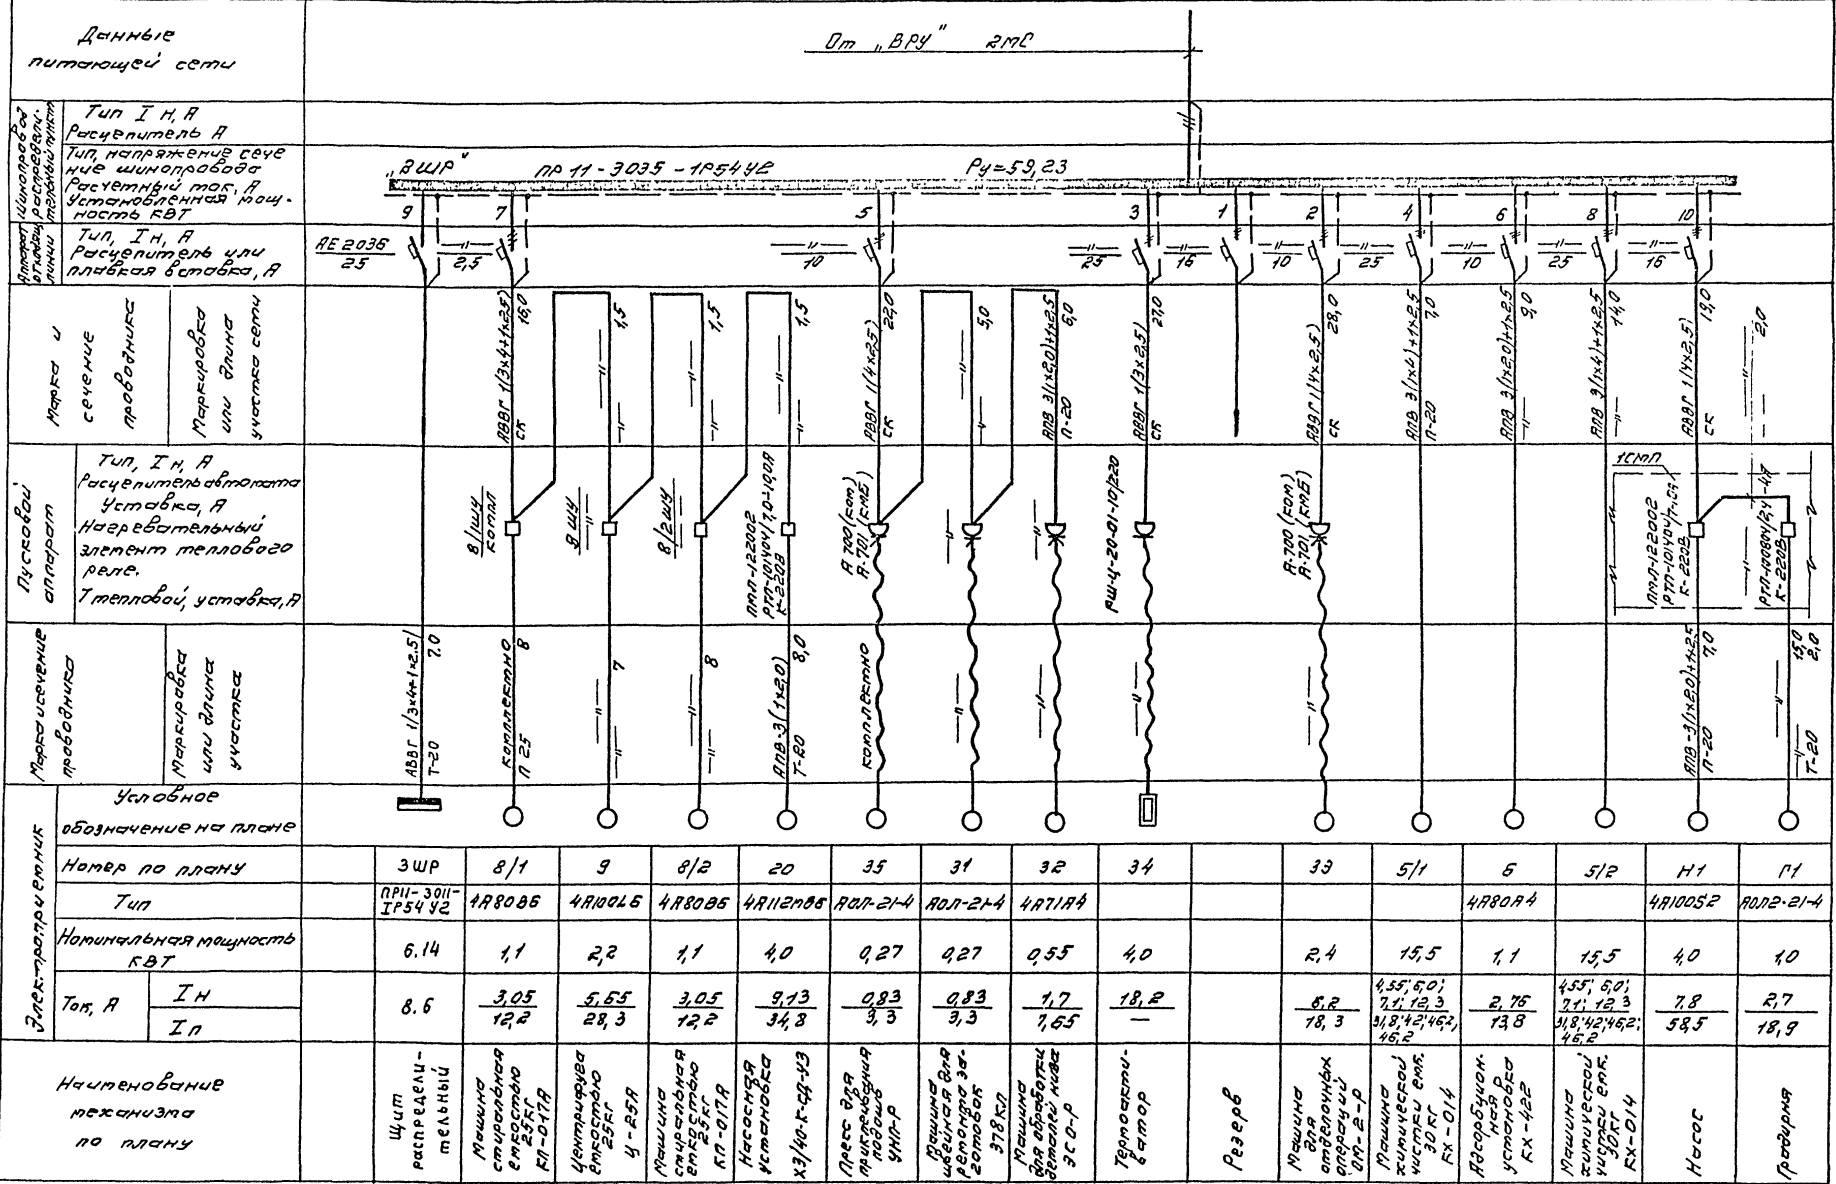 Данные
питающей сети
От „ВРУ" 2МС
Шинопровод
распредели-
тельный пункт
Тип Iн, А
Расцепитель А
Тип, напряжение сече
ние шинопровода
Расчетный ток, А
Установленная мощ-
ность кВт
„3ШР" ПР 11-3035-1Р54У2 Ру=59,23
9 7 5 3 1 2 4 6 8 10
Аппарат
отходящ.
линии
Тип, Iн, А
Расцепитель или
плавкая вставка, А
АЕ 2036
25
—"—
2,5
—"—
10
—"—
25
—"—
16
—"—
10
—"—
25
—"—
10
—"—
25
—"—
16
Марка и
сечение
проводника
Маркировка
или длина
участка сети
АВВГ 1(3х4+1х2,5) 16,0
СК
—"— 1,5
—"—
—"— 1,5
—"—
—"— 1,5
—"—
АВВГ 1(4х2,5) 22,0
СК
—"— 5,0
—"—
АПВ 3(1х2,0)+1х2,5 6,0
П-20
АВВГ 1(3х2,5) 27,0
СК
АВВГ 1(4х2,5) 28,0
СК
АПВ 3(1х4)+1х2,5 7,0
П-20
АПВ 3(1х2,0)+1х2,5 9,0
—"—
АПВ 3(1х4)+1х2,5 14,0
—"—
АВВГ 1(4х2,5) 19,0
СК
—"— 2,0
Пусковой
аппарат
Тип, Iн, А
Расцепитель автомата
Уставка, А
Нагревательный
элемент теплового
реле.
Т тепловой, уставка, А
8/1ШУ
компл
9ШУ
8/2ШУ
ПМЛ-122002
РТЛ-101404/7,0-10,0А
К-220В
А 700 (ком)
А-701 (КМБ)
—"—
—"—
РШ-Ц-20-01-10/220
А-700 (ком)
А-701 (КМБ)
1СМП
ПМЛ-122002
К-220В
—"—
К-220В
Марка и сечение
проводника
Маркировка
или длина
участка
АВВГ 1(3х4+1х2,5) 7,0
Т-20
комплектно 8
П 25
—"— 7
—"—
—"— 8
—"—
АПВ-3(1х2,0) 8,0
Т-20
комплектно
—"—
—"—
—"—
—"—
АПВ-3(1х2,0)+1х2,5 7,0
П-20
—"— 15,0
2,0
—"—
Т-20
Электроприемник
Условное
обозначение на плане
Номер по плану 3ШР 8/1 9 8/2 20 35 31 32 34 33 5/1 6 5/2 Н1 Г1
Тип ПР11-3011-
IР54 У2 4А80В6 4А100L6 4А80В6 4А112МВ6 АОЛ-21-4 АОЛ-21-4 4А71А4 4А80А4 4А100S2 АОЛ2-21-4
Номинальная мощность
кВт 6.14 1,1 2,2 1,1 4,0 0,27 0,27 0,55 4,0 2,4 15,5 1,1 15,5 4,0 1,0
Ток, А
Iн
Iп
8.6
3,05
12,2
5,65
28,3
3,05
12,2
9,13
34,8
0,83
3,3
0,83
3,3
1,7
7,65
18,2
—
6,2
18,3
4,55; 6,0;
7,1; 12,3
31,8; 42; 46,2;
46,2
2,76
13,8
4,55; 6,0;
7,1; 12,3
31,8; 42; 46,2;
46,2
7,8
58,5
2,7
18,9
Наименование
механизма
по плану
Щит
распредели-
тельный
Машина
стиральная
емкостью
25кг
КП-017А
Центрифуга
емкостью
25кг
Ц-25А
Машина
стиральная
емкостью
25кг
КП-017А
Насосная
установка
Х3/40-К-СД-У3
Пресс для
приклеивания
подошв
УНП-Р
Машина
швейная для
ремонта за-
готовок
378кл
Машина
для обработки
деталей низа
ЭСО-Р
Термоакти-
ватор
Резерв
Машина
для
отделочных
операций
ОМ-2-Р
Машина
химической
чистки емк.
30кг
КХ-014
Адсорбцион-
ная
установка
КХ-422
Машина
химической
чистки емк.
30кг
КХ-014
Насос
Градирня